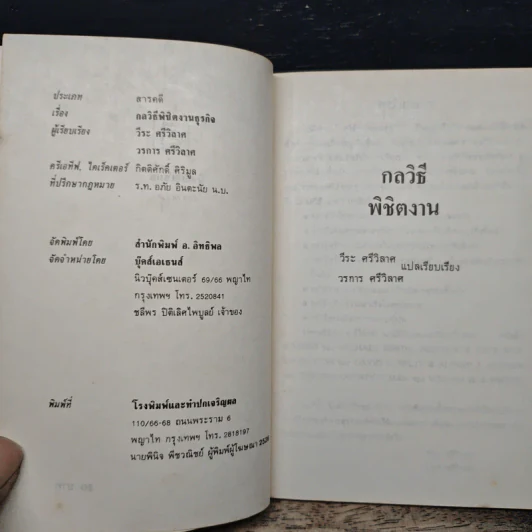 ประเภท สารคดี
เรื่อง กลวิธีพิชิตงานธุรกิจ
ผู้เรียบเรียง วีระ ศรีวิลาศ
วรการ ศรีวิลาศ
ครีเอทีฟ. ไดเร็คเตอร์ กิตติศักดิ์ ศิริมูล
ที่ปรึกษากฎหมาย ร.ท. อภัย อินตะนัย น.บ.
จัดพิมพ์โดย สำนักพิมพ์ อ. อิทธิพล
จัดจำหน่ายโดย บุ๊คส์เอเธนส์
นิวบุ๊คส์เซนเตอร์ 69/66 พญาไท
กรุงเทพฯ โทร. 2520841
ชลีพร ปิติเลิศไพบูลย์ เจ้าของ
พิมพ์ที่ โรงพิมพ์และทำปกเจริญผล
110/66-68 ถนนพระราม 6
พญาไท กรุงเทพฯ โทร. 2818197
นายพินิจ พีชวณิชย์ ผู้พิมพ์ผู้โฆษณา
กลวิธี
พิชิตงาน
วีระ ศรีวิลาศ
แปลเรียบเรียง
วรการ ศรีวิลาศ